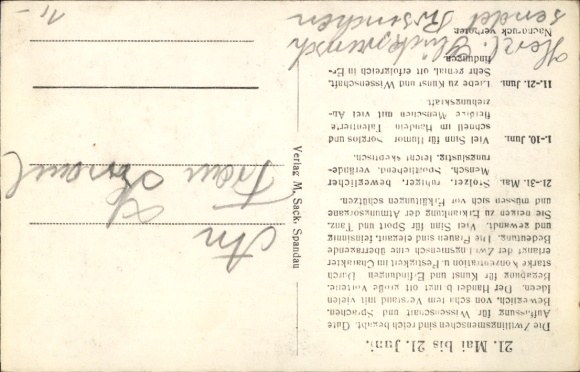 21. Mai bis 21. Juni.
Die Zwillingsmenschen sind reich begabt. Gute
Auffassung für Wissenschaft und Sprachen,
Beweglich, von scharfem Verstand mit vielen
Ideen. Der Handel bringt oft große Vorteile.
Begabung für Kunst und Erfindungen. Durch
starke Konzentration u. Festigkeit im Charakter
erlangt der Zwillingsmensch eine überragende
Bedeutung. Die Frauen sind elegant, feinsinnig
und gewandt. Viel Sinn für Sport und Tanz.
Sie neigen zu Erkrankung der Atmungsorgane
und müssen sich vor Erkältungen schützen.
21.-31. Mai. Stolzer, ruhiger, beweglicher
Mensch. Sportliebend, verände-
rungslustig, leicht skeptisch.
1.-10. Juni. Viel Sinn für Humor und Sorglos und
schnell im Handeln. Talentierte
Menschen mit viel An-
ziehungskraft.
11.-21. Juni. Liebe zu Kunst und Wissenschaft,
Sehr genial, oft erfolgreich in Er-
findungen.
Nachdruck verboten
Herzl. Glückwunsch
sendet Röschen
Verlag M. Sack, Spandau
An
Frau
1,-